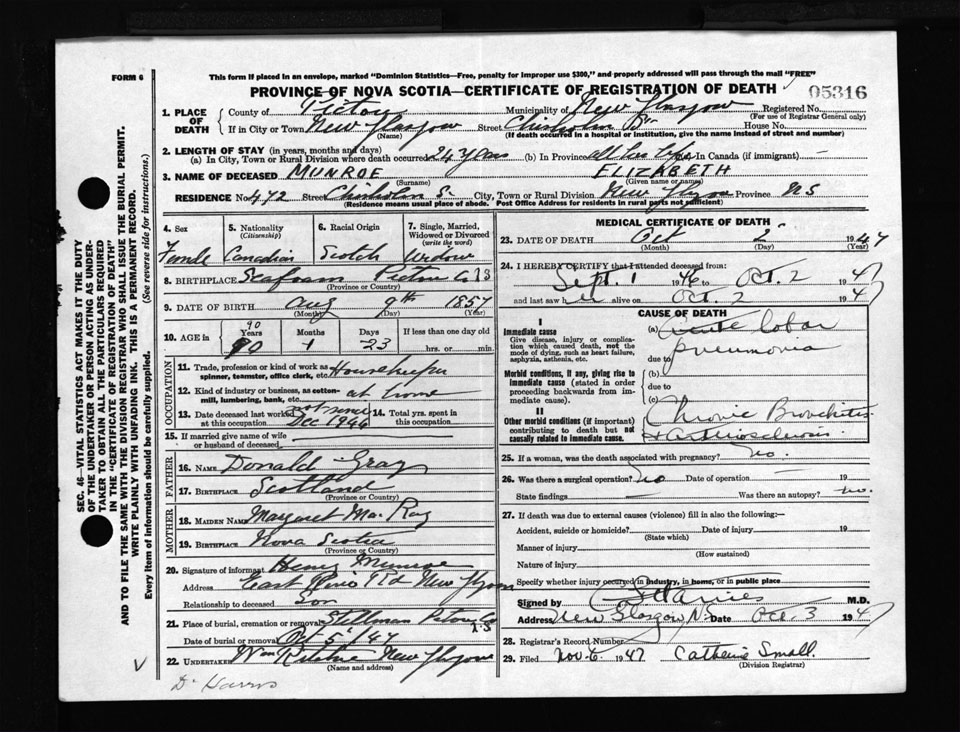 FORM 6
This form if placed in an envelope, marked "Dominion Statistics—Free, penalty for improper use $300," and properly addressed will pass through the mail "FREE"
PROVINCE OF NOVA SCOTIA—CERTIFICATE OF REGISTRATION OF DEATH
05316
1. PLACE OF DEATH
County of Pictou Municipality of New Glasgow Registered No.
(For use of Registrar General only)
If in City or Town New Glasgow Street Chisholm House No.
(Name) (If death occurred in a hospital or institution, give the name instead of street and number)
2. LENGTH OF STAY (in years, months and days)
(a) In City, Town or Rural Division where death occurred 24 years (b) In Province all her life In Canada (if immigrant)
3. NAME OF DECEASED MUNROE ELIZABETH
(Surname) (Given name or names)
RESIDENCE No 472 Street Chisholm S. City, Town or Rural Division New Glasgow Province N S
(Residence means usual place of abode. Post Office Address for residents in rural parts not sufficient)
4. Sex 5. Nationality 6. Racial Origin 7. Single, Married, Widowed or Divorced
(Citizenship) (write the word)
Female Canadian Scotch Widow
8. BIRTHPLACE Seafoam Pictou Co 13
(Province or Country)
9. DATE OF BIRTH Aug 9th 1857
(Month) (Day) (Year)
10. AGE in Years Months Days If less than one day old
90
90 1 23 hrs. or min.
OCCUPATION
11. Trade, profession or kind of work as spinner, teamster, office clerk, etc. Housekeeper
12. Kind of industry or business, as cotton-mill, lumbering, bank, etc. at home
13. Date deceased last worked at this occupation Dec 1944
14. Total yrs. spent in this occupation
15. If married give name of wife or husband of deceased
FATHER
16. NAME Donald Gray
17. BIRTHPLACE Scotland
(Province or Country)
MOTHER
18. MAIDEN NAME Margaret MacRay
19. BIRTHPLACE Nova Scotia
(Province or Country)
20. Signature of informant Henry Munroe
Address East River Rd New Glasgow
Relationship to deceased Son
21. Place of burial, cremation or removal Stillman Pictou Co
Date of burial or removal Oct 5 /47
22. UNDERTAKER Wm Ritchie New Glasgow
(Name and address)
Dr Harris
MEDICAL CERTIFICATE OF DEATH
23. DATE OF DEATH Oct 2 1947
(Month) (Day) (Year)
24. I HEREBY CERTIFY that I attended deceased from:
Sept. 1 1946 to Oct. 2 1947
and last saw her alive on Oct. 2 1947
CAUSE OF DEATH
I
Immediate cause
Give disease, injury or complication which caused death, not the mode of dying, such as heart failure, asphyxia, asthenia, etc.
(a) acute lobar
pneumonia
due to
Morbid conditions, if any, giving rise to immediate cause (stated in order proceeding backwards from immediate cause).
(b)
due to
(c)
II
Other morbid conditions (if important) contributing to death but not causally related to immediate cause.
Chronic Bronchitis
+ Arteriosclerosis.
25. If a woman, was the death associated with pregnancy? no.
26. Was there a surgical operation? no Date of operation 19
State findings Was there an autopsy? no.
27. If death was due to external causes (violence) fill in also the following:—
Accident, suicide or homicide? Date of injury 19
(State which)
Manner of injury
(How sustained)
Nature of injury
Specify whether injury occurred in industry, in home, or in public place
Signed by Harries M.D.
Address New Glasgow, N.S. Date Oct. 3 1947
28. Registrar's Record Number
29. Filed Nov. 6 1947 Catherine Small.
(Division Registrar)
SEC. 46—VITAL STATISTICS ACT MAKES IT THE DUTY
OF THE UNDERTAKER OR PERSON ACTING AS UNDER-
TAKER TO OBTAIN ALL THE PARTICULARS REQUIRED
IN THE "CERTIFICATE OF REGISTRATION OF DEATH"
AND TO FILE THE SAME WITH THE DIVISION REGISTRAR WHO SHALL ISSUE THE BURIAL PERMIT.
WRITE PLAINLY WITH UNFADING INK. THIS IS A PERMANENT RECORD.
Every item of information should be carefully supplied. (See reverse side for instructions.)